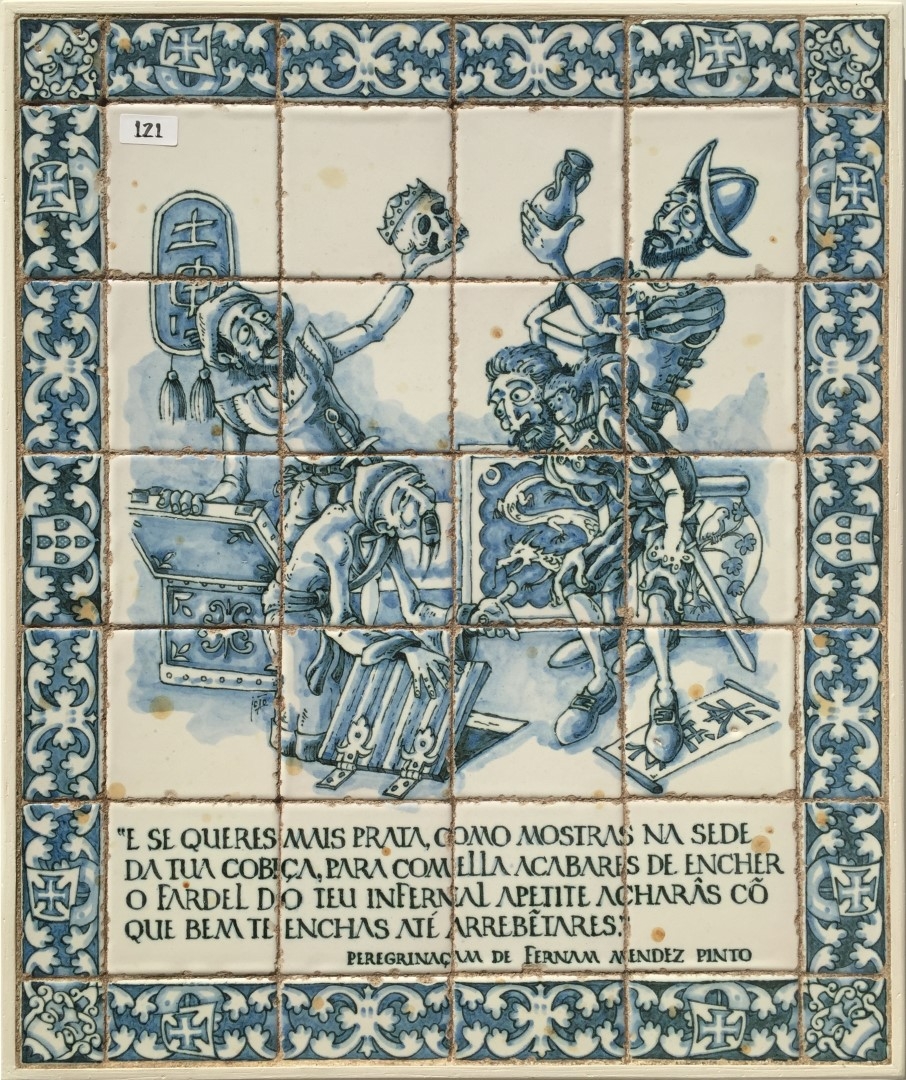 121
"E SE QUERES MAIS PRATA, COMO MOSTRAS NA SEDE
DA TUA COBIÇA, PARA COM ELLA ACABARES DE ENCHER
O FARDEL DO TEU INFERNAL APETITE ACHARÂS CÕ
QUE BEM TE ENCHAS ATÉ ARREBẼTARES."
PEREGRINAÇAM DE FERNAM MENDEZ PINTO